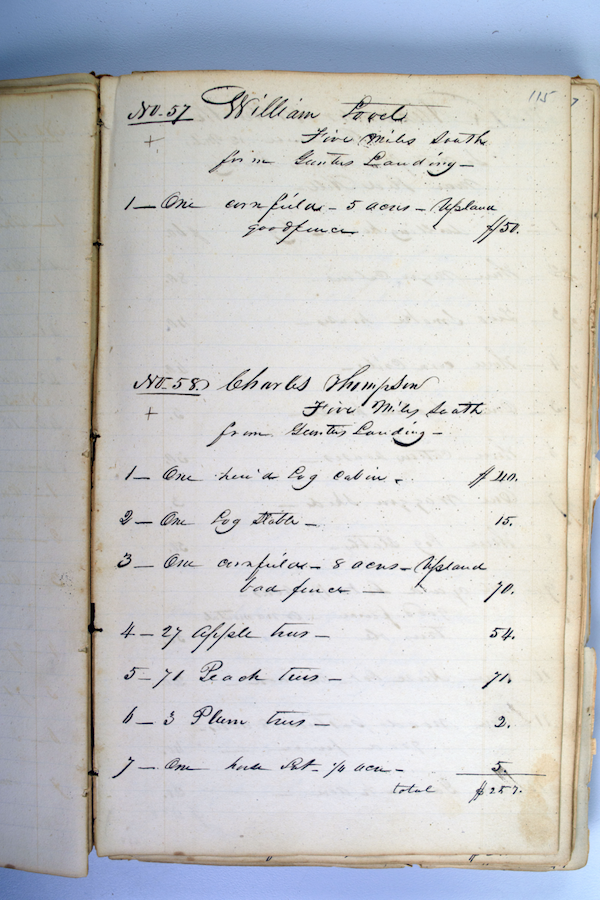 115
No. 57 William
+ Five Miles South
from Gunters Landing —
1 — One cornfield — 5 acres — Upland
good fence $50.
No. 58. Charles Thompson
+ Five Miles South
from Gunters Landing —
1 — One hew'd Log Cabin — $40.
2 — One Log Stable — 15.
3 — One cornfield — 8 acres — Upland
bad fence — 70.
4 — 27 Apple trees — 54.
5 — 71 Peach trees — 71.
6 — 3 Plum trees — 2.
7 — One Lot — 1/4 acre — 5.
total $257.